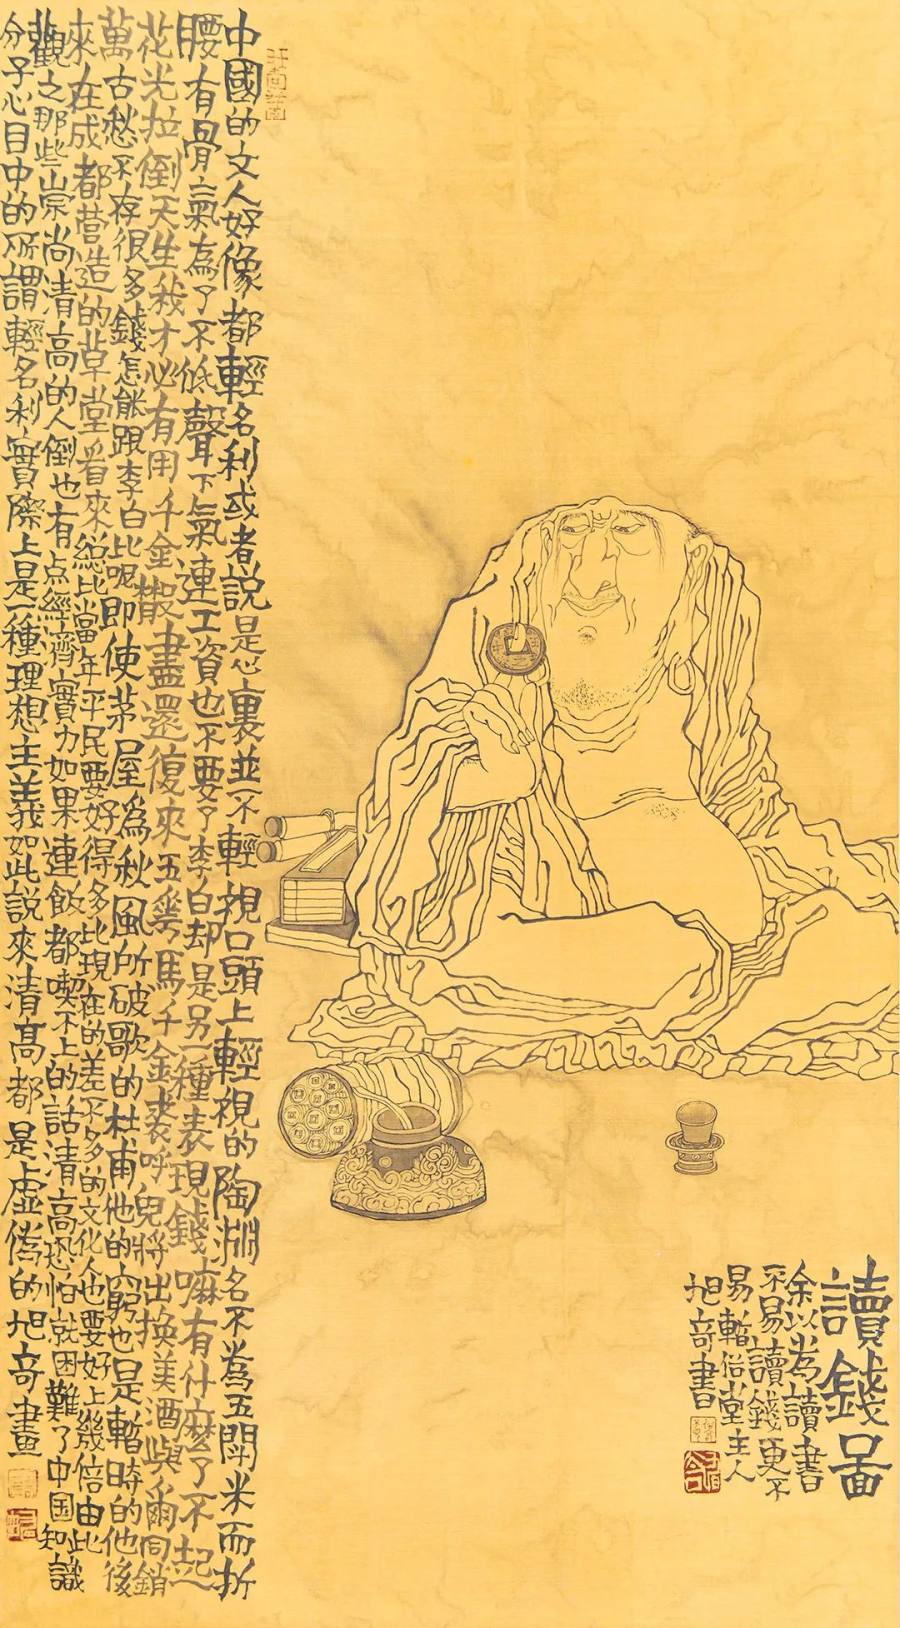 讀錢圖
余以為讀書
不易讀錢更不
易暫俗堂主人
旭奇書
中國的文人好像都輕名利或者説是心裏並不輕視口頭上輕視的陶淵名不為五閗米而折
腰有骨氣為了不低聲下氣連工資也不要了李白却是另一種表現錢嘛有什麼了不起
花光拉倒天生我才必有用千金散盡還復來五花馬千金裘呼兒將出換美酒與爾同銷
萬古愁不存很多錢怎能跟李白比呢即使茅屋為秋風所破歌的杜甫他的窮也是暫時的他後
來在成都营造的草堂看來總比當年平民要好得多比現在的差不多的文化人也要好上幾倍由此
觀之那些崇尚清高的人倒也有点經濟實力如果連飯都喫不上的話清高恐怕就困難了中国知識
分子心目中的所謂輕名利實際上是一種理想主義如此説來清髙都是虚偽的旭奇畫